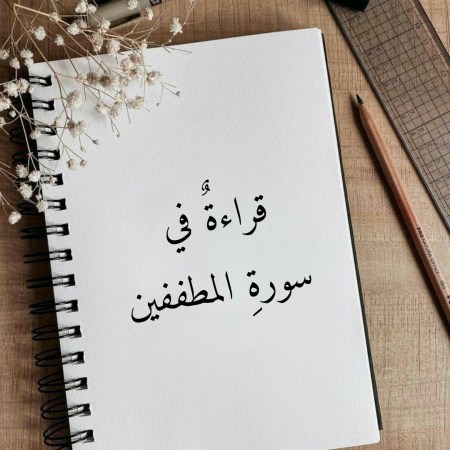 قراءةٌ في
سورةِ المطففين